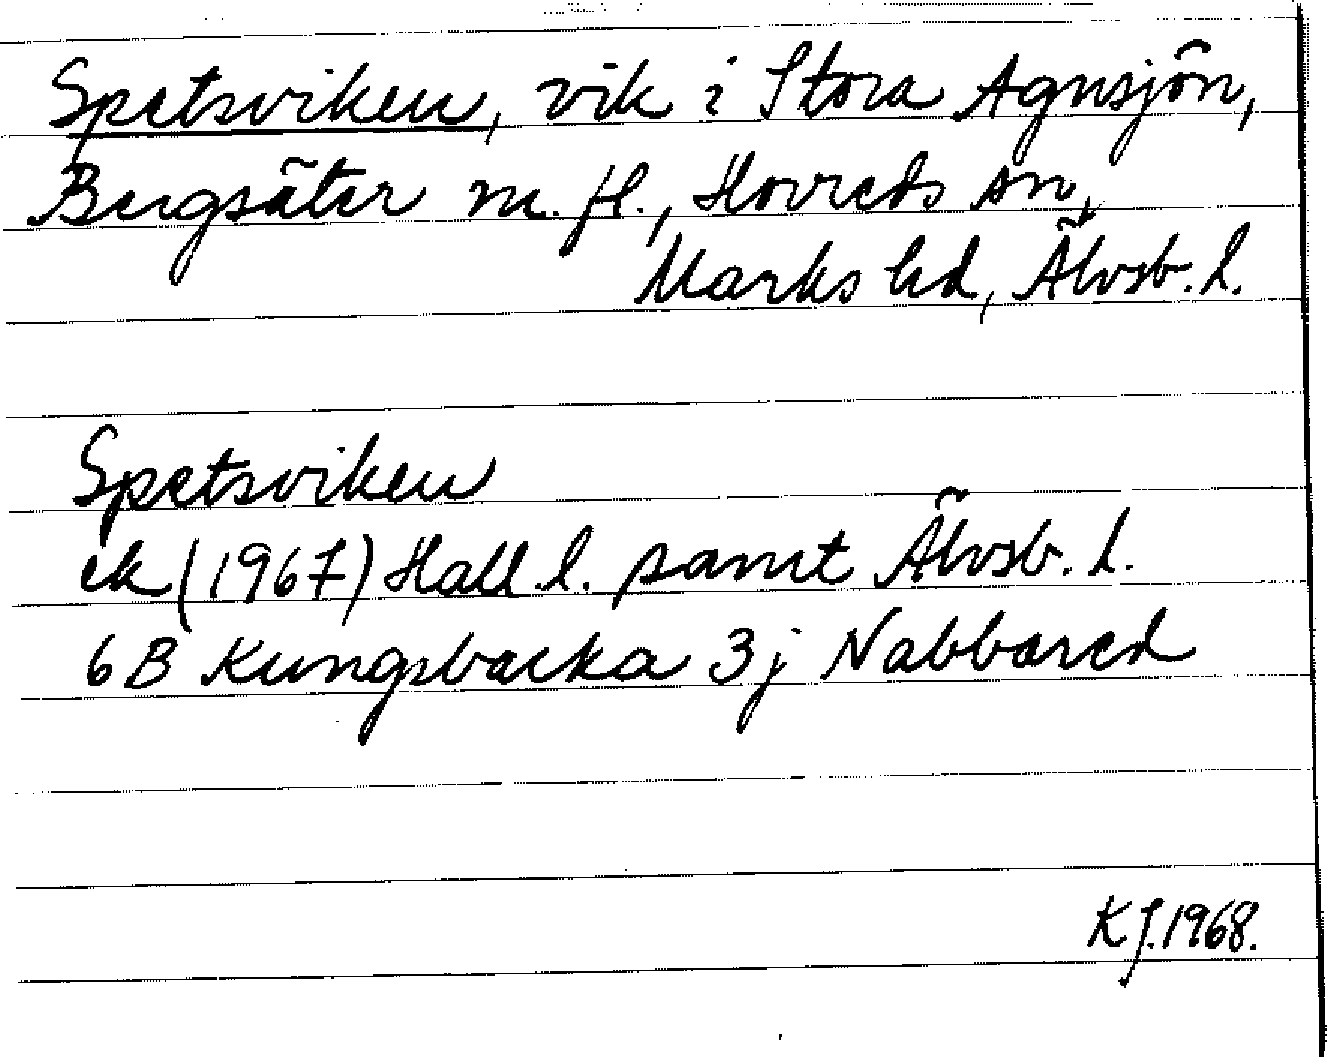 Spetsviken, vik i Stora Agnsjön,
Bergsäter m. fl., Horreds sn,
Marks hd, Älvsb. l.
Spetsviken
ek (1967) Hall. l. samt Älvsb. l.
6B Kungsbacka 3j Nabbared
KJ. 1968.